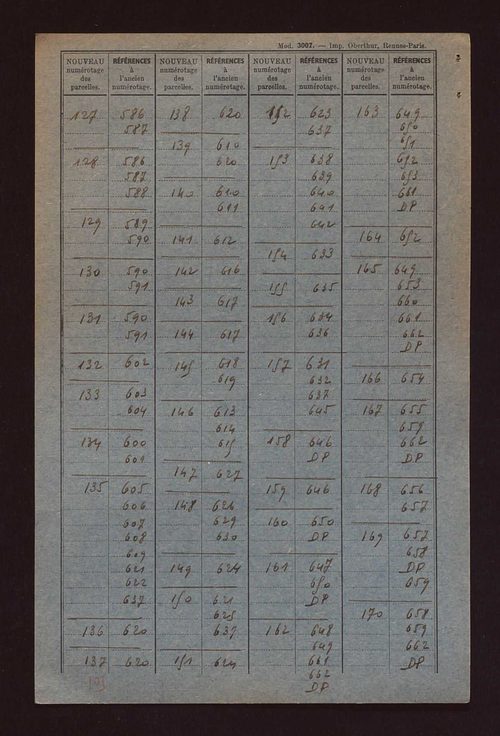 Mod. 3007. — Imp. Oberthur, Rennes-Paris.
NOUVEAU
numérotage
des
parcelles.
RÉFÉRENCES
à
l'ancien
numérotage.
127 586
587
128 586
587
588
129 589
590
130 590
591
131 590
591
132 602
133 603
604
134 600
601
135 605
606
607
608
609
621
622
637
136 620
137 620
NOUVEAU
numérotage
des
parcelles.
RÉFÉRENCES
à
l'ancien
numérotage.
138 620
139 610
620
140 610
611
141 612
142 616
143 617
144 617
145 618
619
146 613
614
615
147 627
148 626
629
630
149 624
150 621
625
637
151 624
NOUVEAU
numérotage
des
parcelles.
RÉFÉRENCES
à
l'ancien
numérotage.
152 623
637
153 638
639
640
641
642
154 633
155 635
156 634
636
157 631
632
637
645
158 646
DP
159 646
160 650
DP
161 647
650
DP
162 648
649
661
662
DP
NOUVEAU
numérotage
des
parcelles.
RÉFÉRENCES
à
l'ancien
numérotage.
163 649
650
651
652
653
661
DP
164 652
165 649
653
660
661
662
DP
166 654
167 655
659
662
DP
168 656
657
169 657
658
DP
659
170 658
659
662
DP